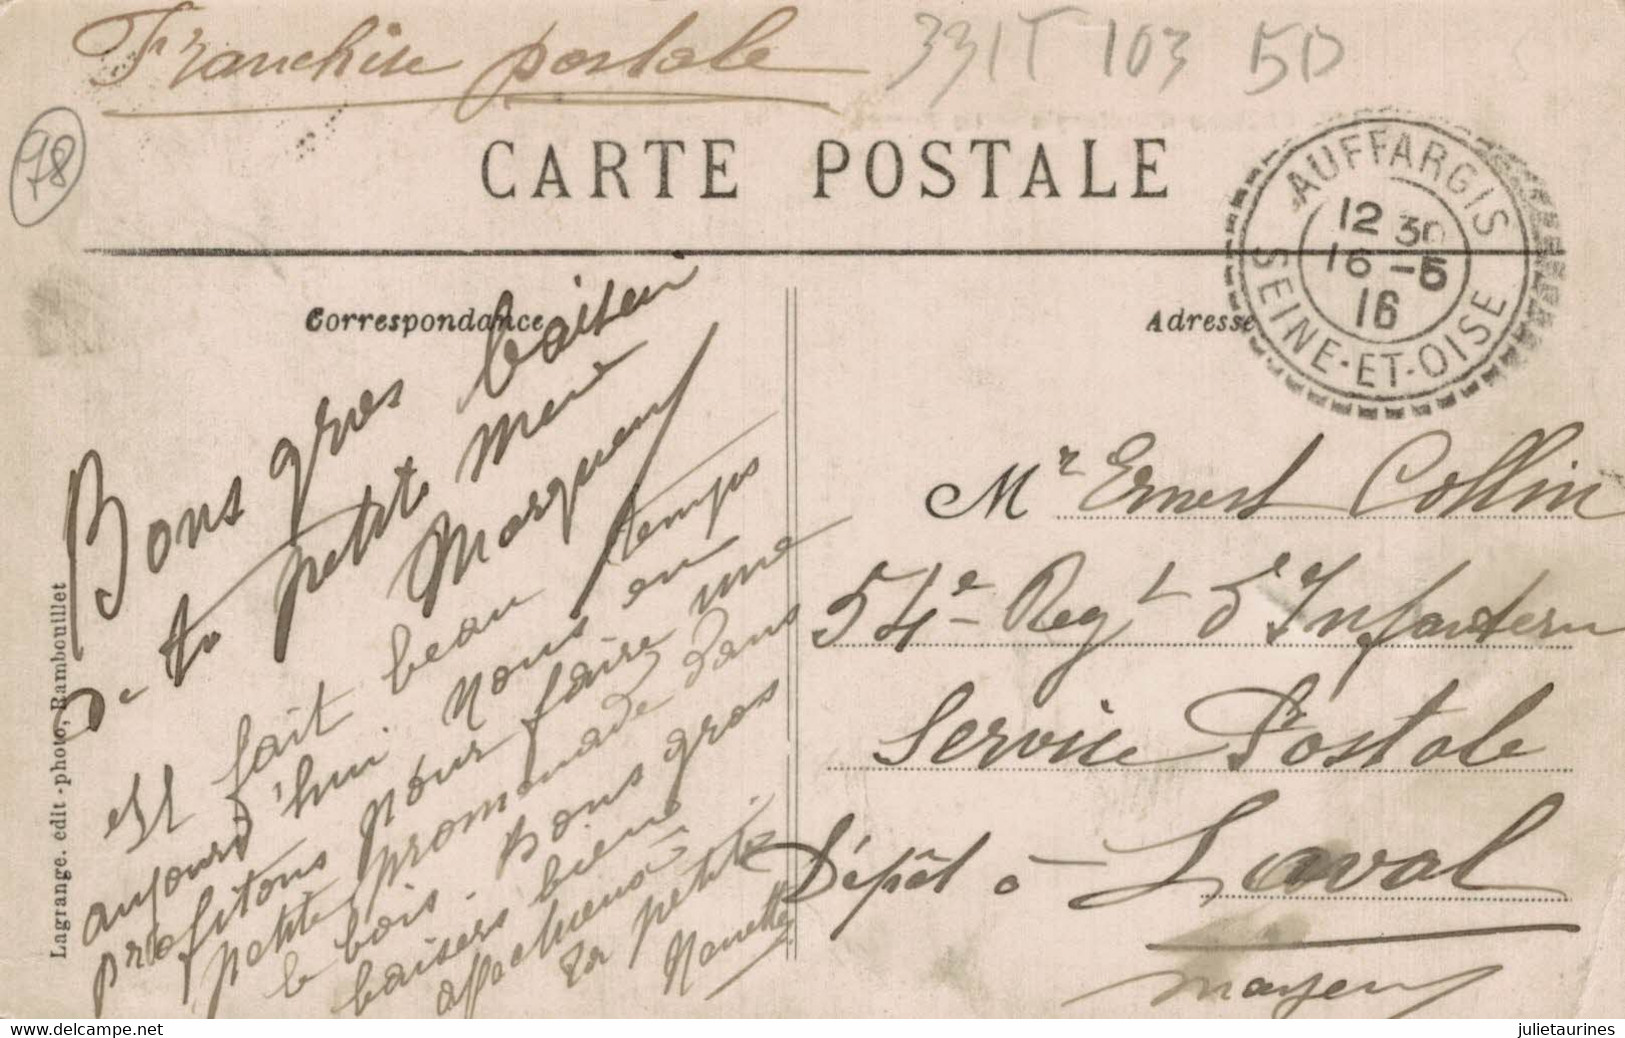 Franchise postale
331T 103 5D
78
CARTE POSTALE
AUFFARGIS
12 30
16 -5
16
SEINE-ET-OISE
Correspondance
Adresse
Bons gros baisers
De ta petite mère
Marguerite
Il fait beau temps
aujourd'hui. Nous en
profitons pour faire une
petite promenade dans
le bois. Bons gros
baisers bien
affectueux
Ta petite
Nanette
Mr Ernest Collin
54e Regt d'Infanterie
Service Postale
Dépôt à Laval
Mayenne
Lagrange. edit -photo, Rambouillet
julietaurines